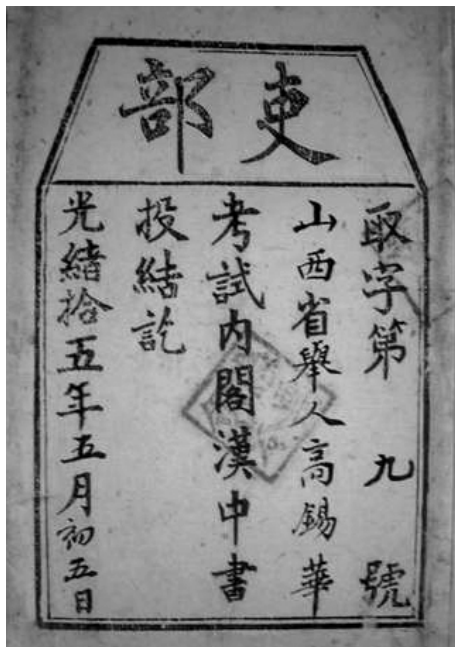 吏部
取字第九號
山西省舉人高錫華
考試內閣漢中書
投結訖
光緒拾五年五月初五日